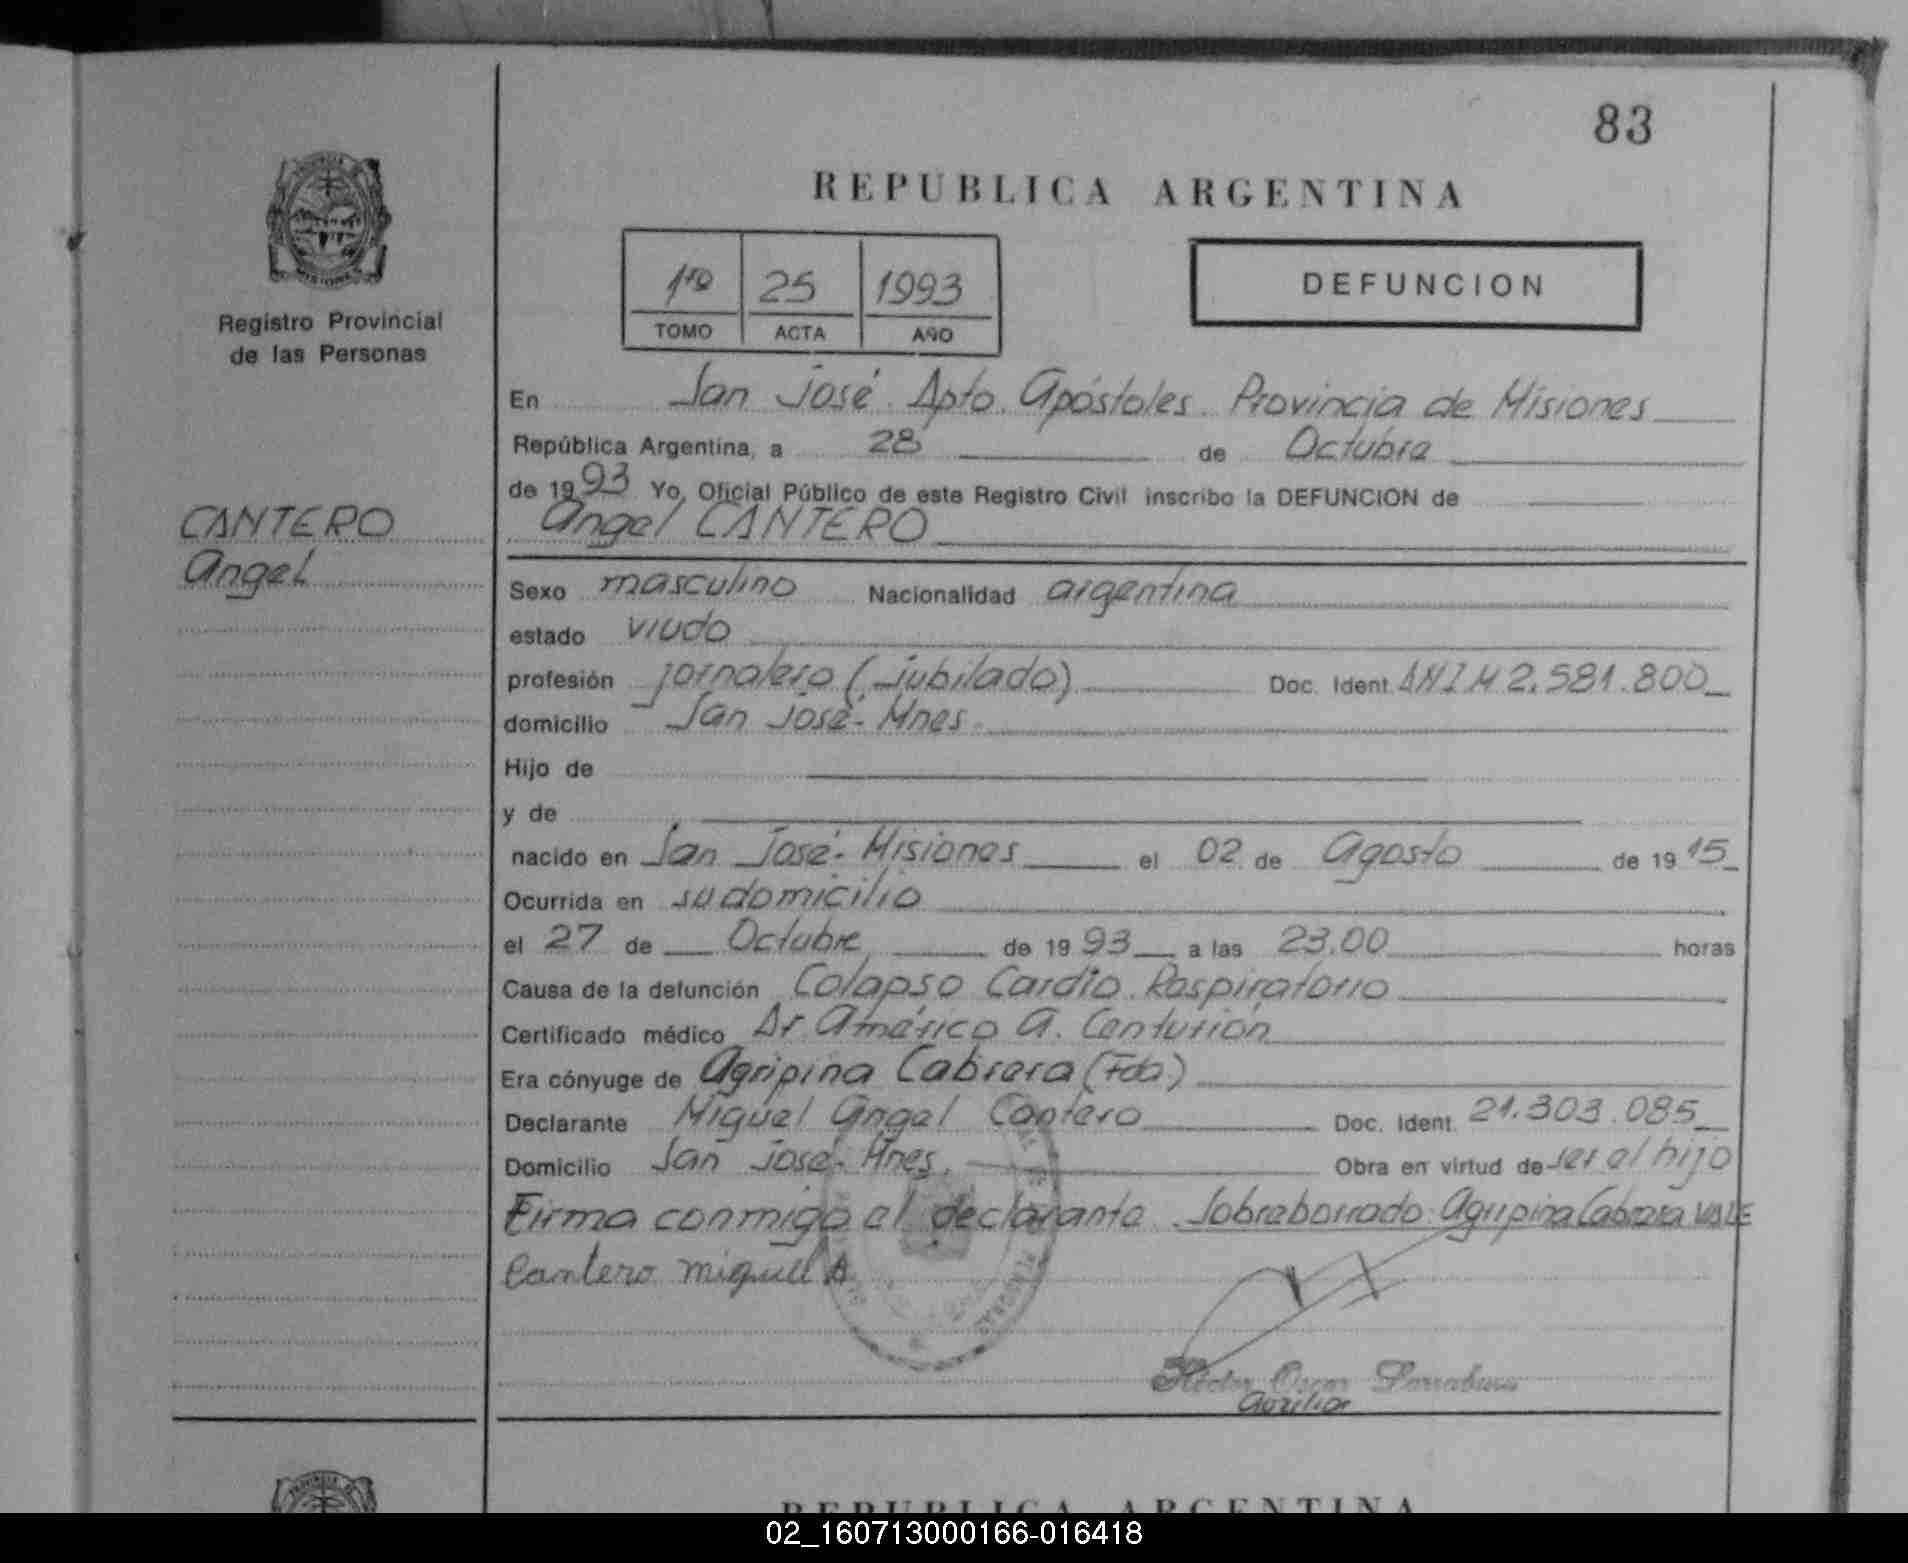 83
REPUBLICA ARGENTINA
1ro 25 1993
TOMO ACTA AÑO
DEFUNCION
Registro Provincial
de las Personas
CANTERO
Angel
En San José. Dpto. Apóstoles. Provincia de Misiones
República Argentina, a 28 de Octubre
de 1993 Yo, Oficial Público de este Registro Civil inscribo la DEFUNCION de
Angel CANTERO
Sexo masculino Nacionalidad argentina
estado viudo
profesión jornalero (jubilado) Doc. Ident. DNI M 2.581.800
domicilio San José- Mnes.
Hijo de
y de
nacido en San José- Misiones el 02 de Agosto de 1915
Ocurrida en su domicilio
el 27 de Octubre de 1993 a las 23.00 horas
Causa de la defunción Colapso Cardio. Respiratorio
Certificado médico Dr. Américo A. Centurión
Era cónyuge de Agripina Cabrera (Fda)
Declarante Miguel Angel Cantero Doc. Ident. 21.303.085
Domicilio San José- Mnes. Obra en virtud de ser el hijo
Firma conmigo el declarante Sobreborrado: Agripina Cabrera VALE
Cantero miguel A
Héctor Oscar
Auxiliar
REPUBLICA ARGENTINA
02_160713000166-016418